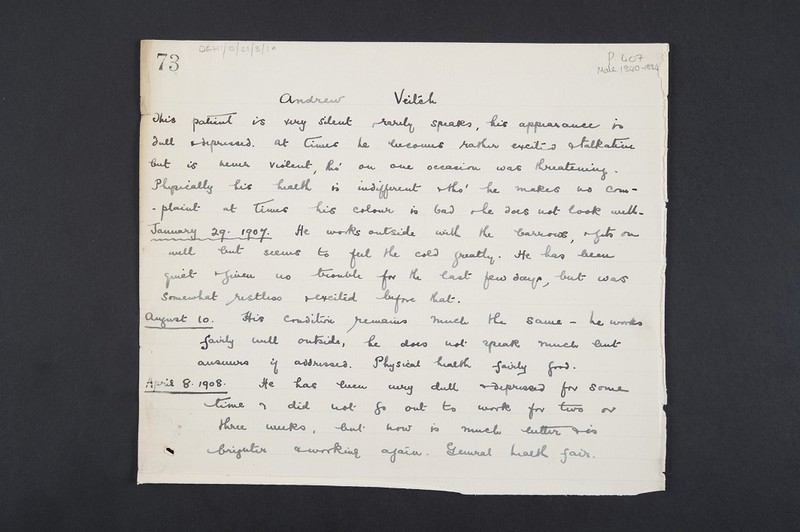 73
P. 407
Male 1890-1894
Andrew Veitch
This patient is very silent, rarely speaks, his appearance is
dull & depressed. At times he becomes rather excited & talkative
but is never violent, tho' on one occasion was threatening.
Physically his health is indifferent & tho' he makes no com-
-plaint at times his colour is bad & he does not look well.
January 29. 1907. He works outside with the barrows, & gets on
well but seems to feel the cold greatly. He has been
quiet & given no trouble for the last few days, but was
somewhat restless & excited before that.
August 10. His condition remains much the same - he works
fairly well outside, he does not speak much but
answers if addressed. Physical health fairly good.
April 8. 1908. He has been very dull & depressed for some
time & did not go out to work for two or
three weeks, but now is much better & is
brighter & working again. General health fair.